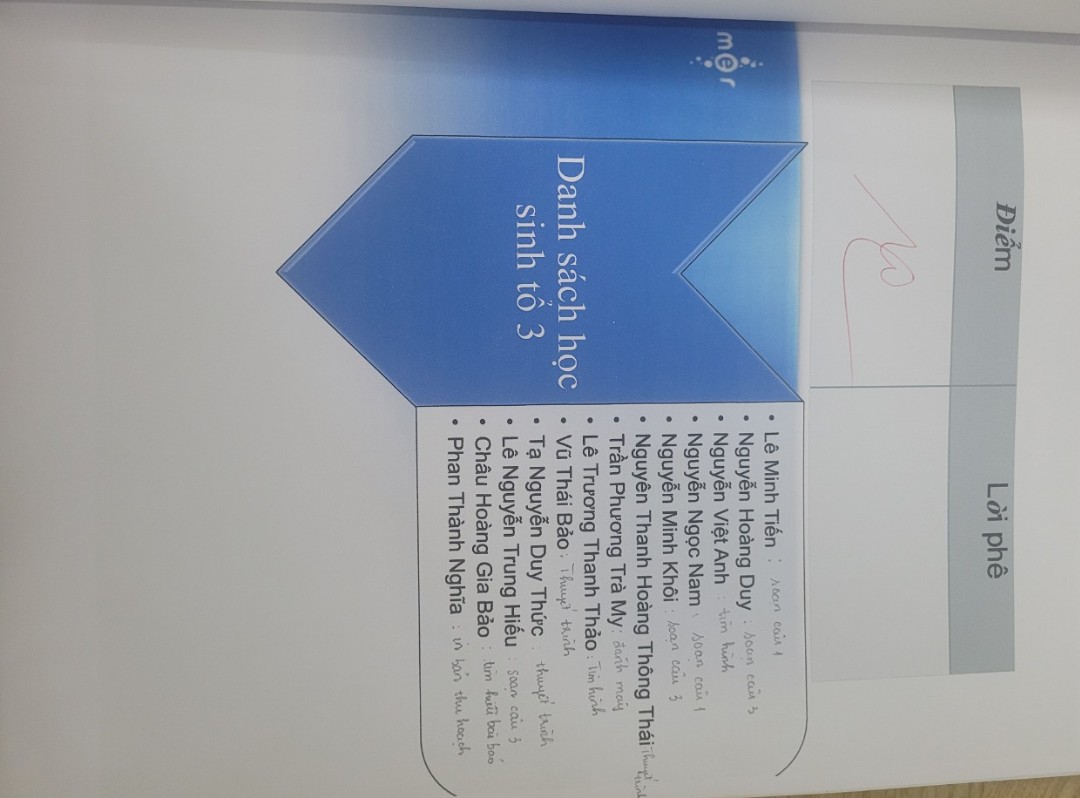 Điểm
Lời phê
10
mer
Danh sách học
sinh tổ 3
• Lê Minh Tiến : soạn câu 1
• Nguyễn Hoàng Duy : soạn câu 3
• Nguyễn Việt Anh : tìm hình
• Nguyễn Ngọc Nam : soạn câu 1
• Nguyễn Minh Khôi : soạn câu 3
• Nguyên Thanh Hoàng Thông Thái Thuyết trình
• Trần Phương Trà My : đánh máy
• Lê Trương Thanh Thảo : Tìm hình
• Vũ Thái Bảo : Thuyết trình
• Tạ Nguyễn Duy Thức : thuyết trình
• Lê Nguyễn Trung Hiếu : soạn câu 3
• Châu Hoàng Gia Bảo : tìm hiểu bài báo
• Phan Thành Nghĩa : in bản thu hoạch